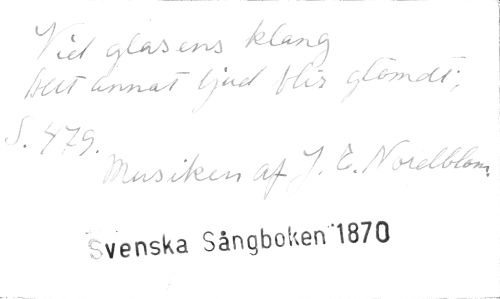 Vid glasens klang
Allt annat ljud blir glömdt;
S. 479.
Musiken af J. E. Nordblom.
Svenska Sångboken 1870